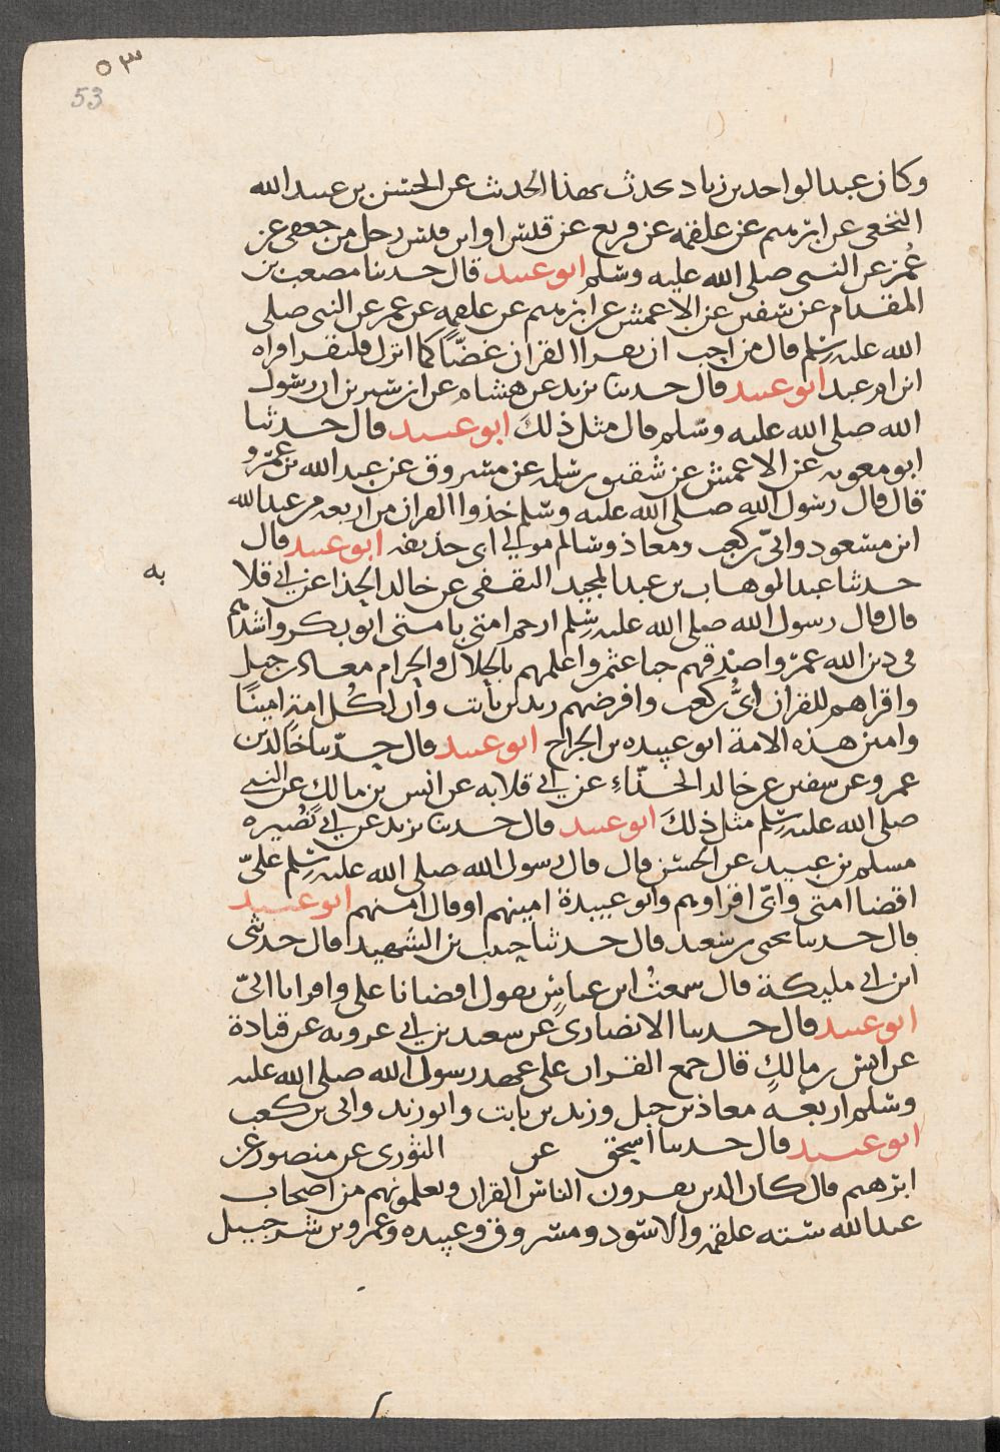 ٥٣
53
وكان عبد الواحد بن زياد يحدث بهذا الحديث عن الحسن بن عبيد الله
النخعي عن ابرهيم عن علقمة عن قريع عن قيس او ابن قيس رجل من جعفي عن
عمر عن النبي صلى الله عليه وسلم ابو عبيد قال حدثنا مصعب بن
المقدام عن سفين عن الاعمش عن ابرهيم عن علقمة عن عمر عن النبي صلى
الله عليه وسلم قال من احب ان يقرا القران غضّا كما انزل فليقراه قراة
ابن ام عبد ابو عبيد قال حدثنا يزيد عن هشام عن ابن سيرين ان رسول
الله صلى الله عليه وسلم قال مثل ذلك ابو عبيد قال حدثنا
ابو معوية عن الاعمش عن شقيق بن سلمة عن مسروق عن عبد الله بن عمرو
قال قال رسول الله صلى الله عليه وسلم خذوا القران من اربعة من عبد الله
ابن مسعود وابيّ بن كعب ومعاذ وسالم مولى ابي حذيفة ابو عبيد قال
حدثنا عبد الوهاب بن عبد المجيد الثقفي عن خالد الحذا عن ابي قلا
به
قال قال رسول الله صلى الله عليه وسلم ارحم امتي بامتي ابو بكر واشدهم
في دين الله عمر واصدقهم حيا عثمن واعلمهم بالحلال والحرام معاذ بن جبل
واقراهم للقران ابيُّ بن كعب وافرضهم زيد بن ثابت وان لكُل امةٍ امينًا
وامين هذه الامة ابو عبيدة بن الجراح ابو عبيد قال حدّثنا خالد بن
عمرو عن سفين عن خالد الحذّاءِ عن ابي قلابه عن انس بن مالكٍ عن النبي
صلى الله عليه وسلم مثل ذلكَ ابو عبيد قال حدثنا يزيد عن ابي نُصيره
مسلم بن عبيد عن الحسن قال قال رسول الله صلى الله عليه وسلم عليّ
اقضا امتي وابيّ اقراوهم وابو عبيدة امينهم او قال امنهم ابو عبيد
قال حدثنا يحيى بن سعيد قال حدثنا حبيب بن الشهيد قال حدثني
ابن ابي مليكة قال سمعتُ ابن عباسٍ يقول اقضانا علي واقرانا ابيّ
ابو عبيد قال حدثنا الانصاري عن سعيد بن ابي عروبه عن قتادة
عن انس بن مالكٍ قال جمع القران على عهد رسول الله صلى الله عليه
وسلم اربعة معاذ بن جبل وزيد بن ثابت وابو زيد وابي بن كعب
ابو عبيد قال حدثنا اسحق عن الثوري عن منصور عن
ابرهيم قال كان الذين يقرون الناس القران ويعلمونهم من اصحاب
عبد الله ستة علقمة والاسود ومسروق وعبيدة وعمرو بن شرحبيل